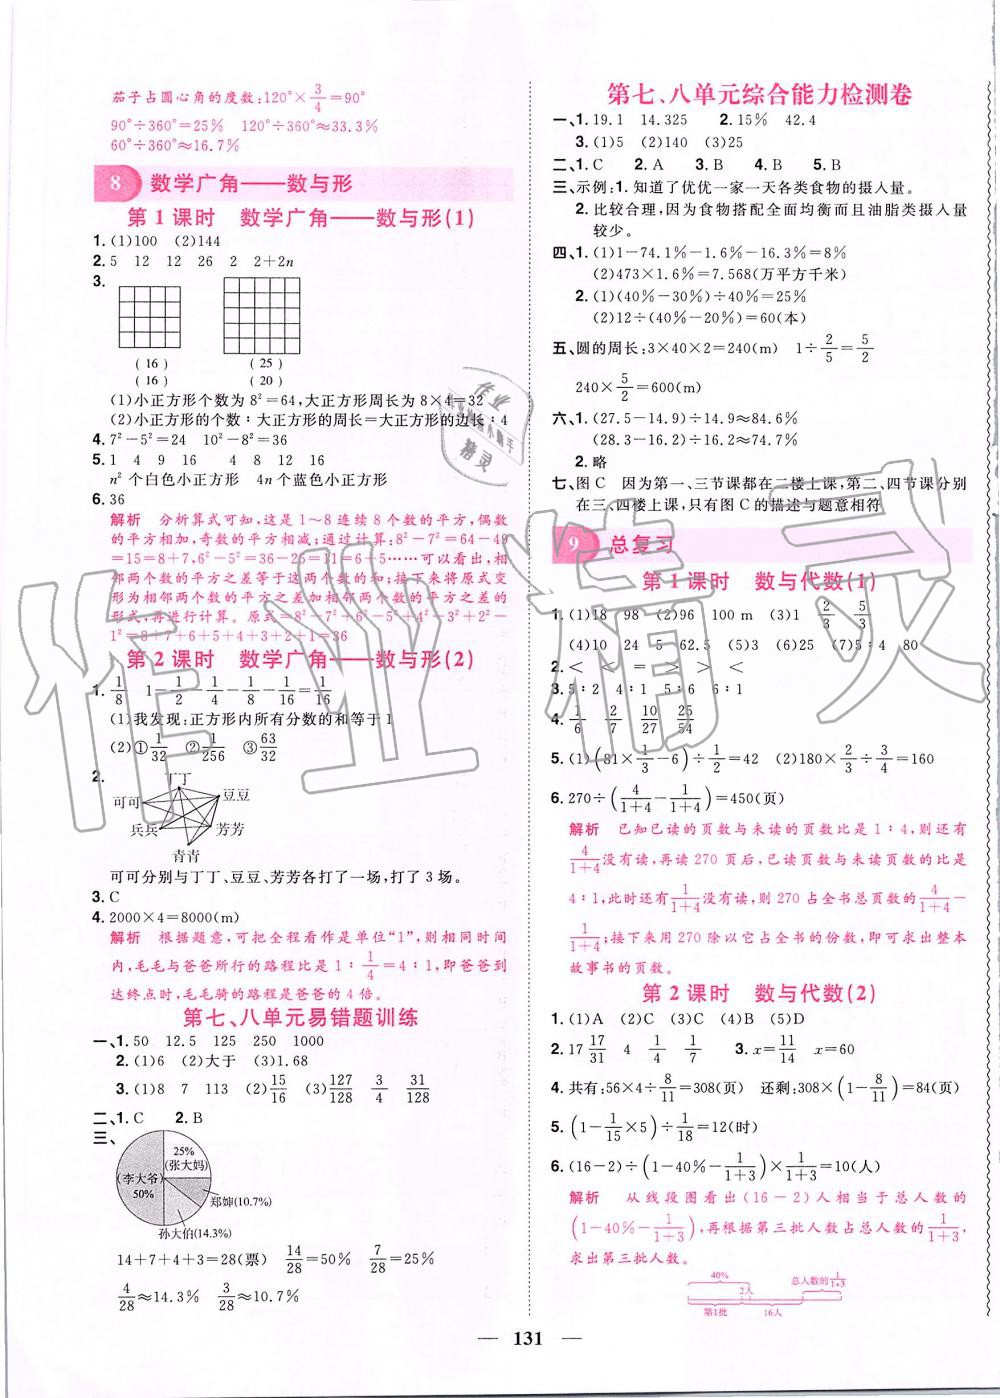 茄子占圆心角的度数:120°×3/4=90°
90°÷360°=25%　120°÷360°≈33.3%
60°÷360°≈16.7%
8　数学广角——数与形
第1课时　数学广角——数与形(1)
1.(1)100　(2)144
2.5　12　12　26　2　2+2n
3.
(16)　(25)
(16)　(20)
(1)小正方形个数为8²=64,大正方形周长为8×4=32
(2)小正方形的个数∶大正方形的周长=大正方形的边长∶4
4.7²-5²=24　10²-8²=36
5.1　4　9　16　4　8　12　16
n²个白色小正方形　4n个蓝色小正方形
6.36
解析　分析算式可知,这是1~8连续8个数的平方,偶数
的平方相加,奇数的平方相减;通过计算可知:8²-7²=64-49
=15=8+7,6²-5²=36-25=11=6+5……可以看出,相
邻两个数的平方之差等于这两个数的和;接下来将原式变
形为相邻两个数的平方之差加相邻两个数的平方之差的
形式,再进行计算。原式=8²-7²+6²-5²+4²-3²+2²-
1²=8+7+6+5+4+3+2+1=36
第2课时　数学广角——数与形(2)
1.1/8　1-1/2-1/4-1/8-1/16=1/16
(1)我发现:正方形内所有分数的和等于1
(2)①1/32　②1/256　③63/32
2.
丁丁
可可　豆豆
兵兵　芳芳
青青
可可分别与丁丁、豆豆、芳芳各打了一场,打了3场。
3.C
4.2000×4=8000(m)
解析　根据题意,可把全程看作是单位“1”,则相同时间
内,毛毛与爸爸所行的路程比是1∶1/4=4∶1,即爸爸到
达终点时,毛毛骑的路程是爸爸的4倍。
第七、八单元易错题训练
一、1.50　12.5　125　250　1000
2.(1)6　(2)大于　(3)1.68
3.(1)8　7　113　(2)15/16　(3)127/128　3/4　31/128
二、1.C　2.B
三、
25%
(张大妈)
(李大爷)
50%
郑婶(10.7%)
孙大伯(14.3%)
14+7+4+3=28(票)　14/28=50%　7/28=25%
4/28≈14.3%　3/28≈10.7%
第七、八单元综合能力检测卷
一、1.19.1　14.325　2.15%　42.4
3.(1)5　(2)140　(3)25
二、1.C　2.A　3.B　4.B　5.C
三、示例:1.知道了优优一家一天各类食物的摄入量。
2.比较合理,因为食物搭配全面均衡而且油脂类摄入量
较少。
四、1.(1)1-74.1%-1.6%-16.3%=8%
(2)473×1.6%=7.568(万平方千米)
2.(1)(40%-30%)÷40%=25%
(2)12÷(40%-20%)=60(本)
五、圆的周长:3×40×2=240(m)　1÷2/5=5/2
240×5/2=600(m)
六、1.(27.5-14.9)÷14.9≈84.6%
(28.3-16.2)÷16.2≈74.7%
2.略
七、图C　因为第一、三节课都在二楼上课,第二、四节课分别
在三、四楼上课,只有图C的描述与题意相符
9　总复习
第1课时　数与代数(1)
1.(1)18　98　(2)96　100 m　(3)1　2/3　5/3
(4)10　24　5　62.5　(5)3　(6)25　(7)5∶4　80
2.<　<　=　>　>　<
3.5∶2　4∶1　5∶6　6∶1
4.1/6　2/7　10/27　25/54
5.(1)(81×1/3-6)÷1/2=42　(2)180×2/3÷3/4=160
6.270÷(4/(1+4)-1/(1+4))=450(页)
解析　已知已读的页数与未读的页数比是1∶4,则还有
4/(1+4)没有读,再读270页后,已读页数与未读页数的比是
4∶1,此时还有1/(1+4)没有读,则270占全书总页数的4/(1+4)-
1/(1+4);接下来用270除以它占全书的份数,即可求出整本
故事书的页数。
第2课时　数与代数(2)
1.(1)A　(2)C　(3)C　(4)B　(5)D
2.17　17/31　4　1/4　1/7　3.x=11/14　x=60
4.共有:56×4÷8/11=308(页)　还剩:308×(1-8/11)=84(页)
5.(1-1/15×5)÷1/18=12(时)
6.(16-2)÷(1-40%-1/(1+3))×1/(1+3)=10(人)
解析　从线段图看出(16-2)人相当于总人数的
(1-40%-1/(1+3)),再根据第三批人数占总人数的1/(1+3),
求出第三批人数。
40%　总人数的1/(1+3)
2人
第1批　16人
131
作业精灵